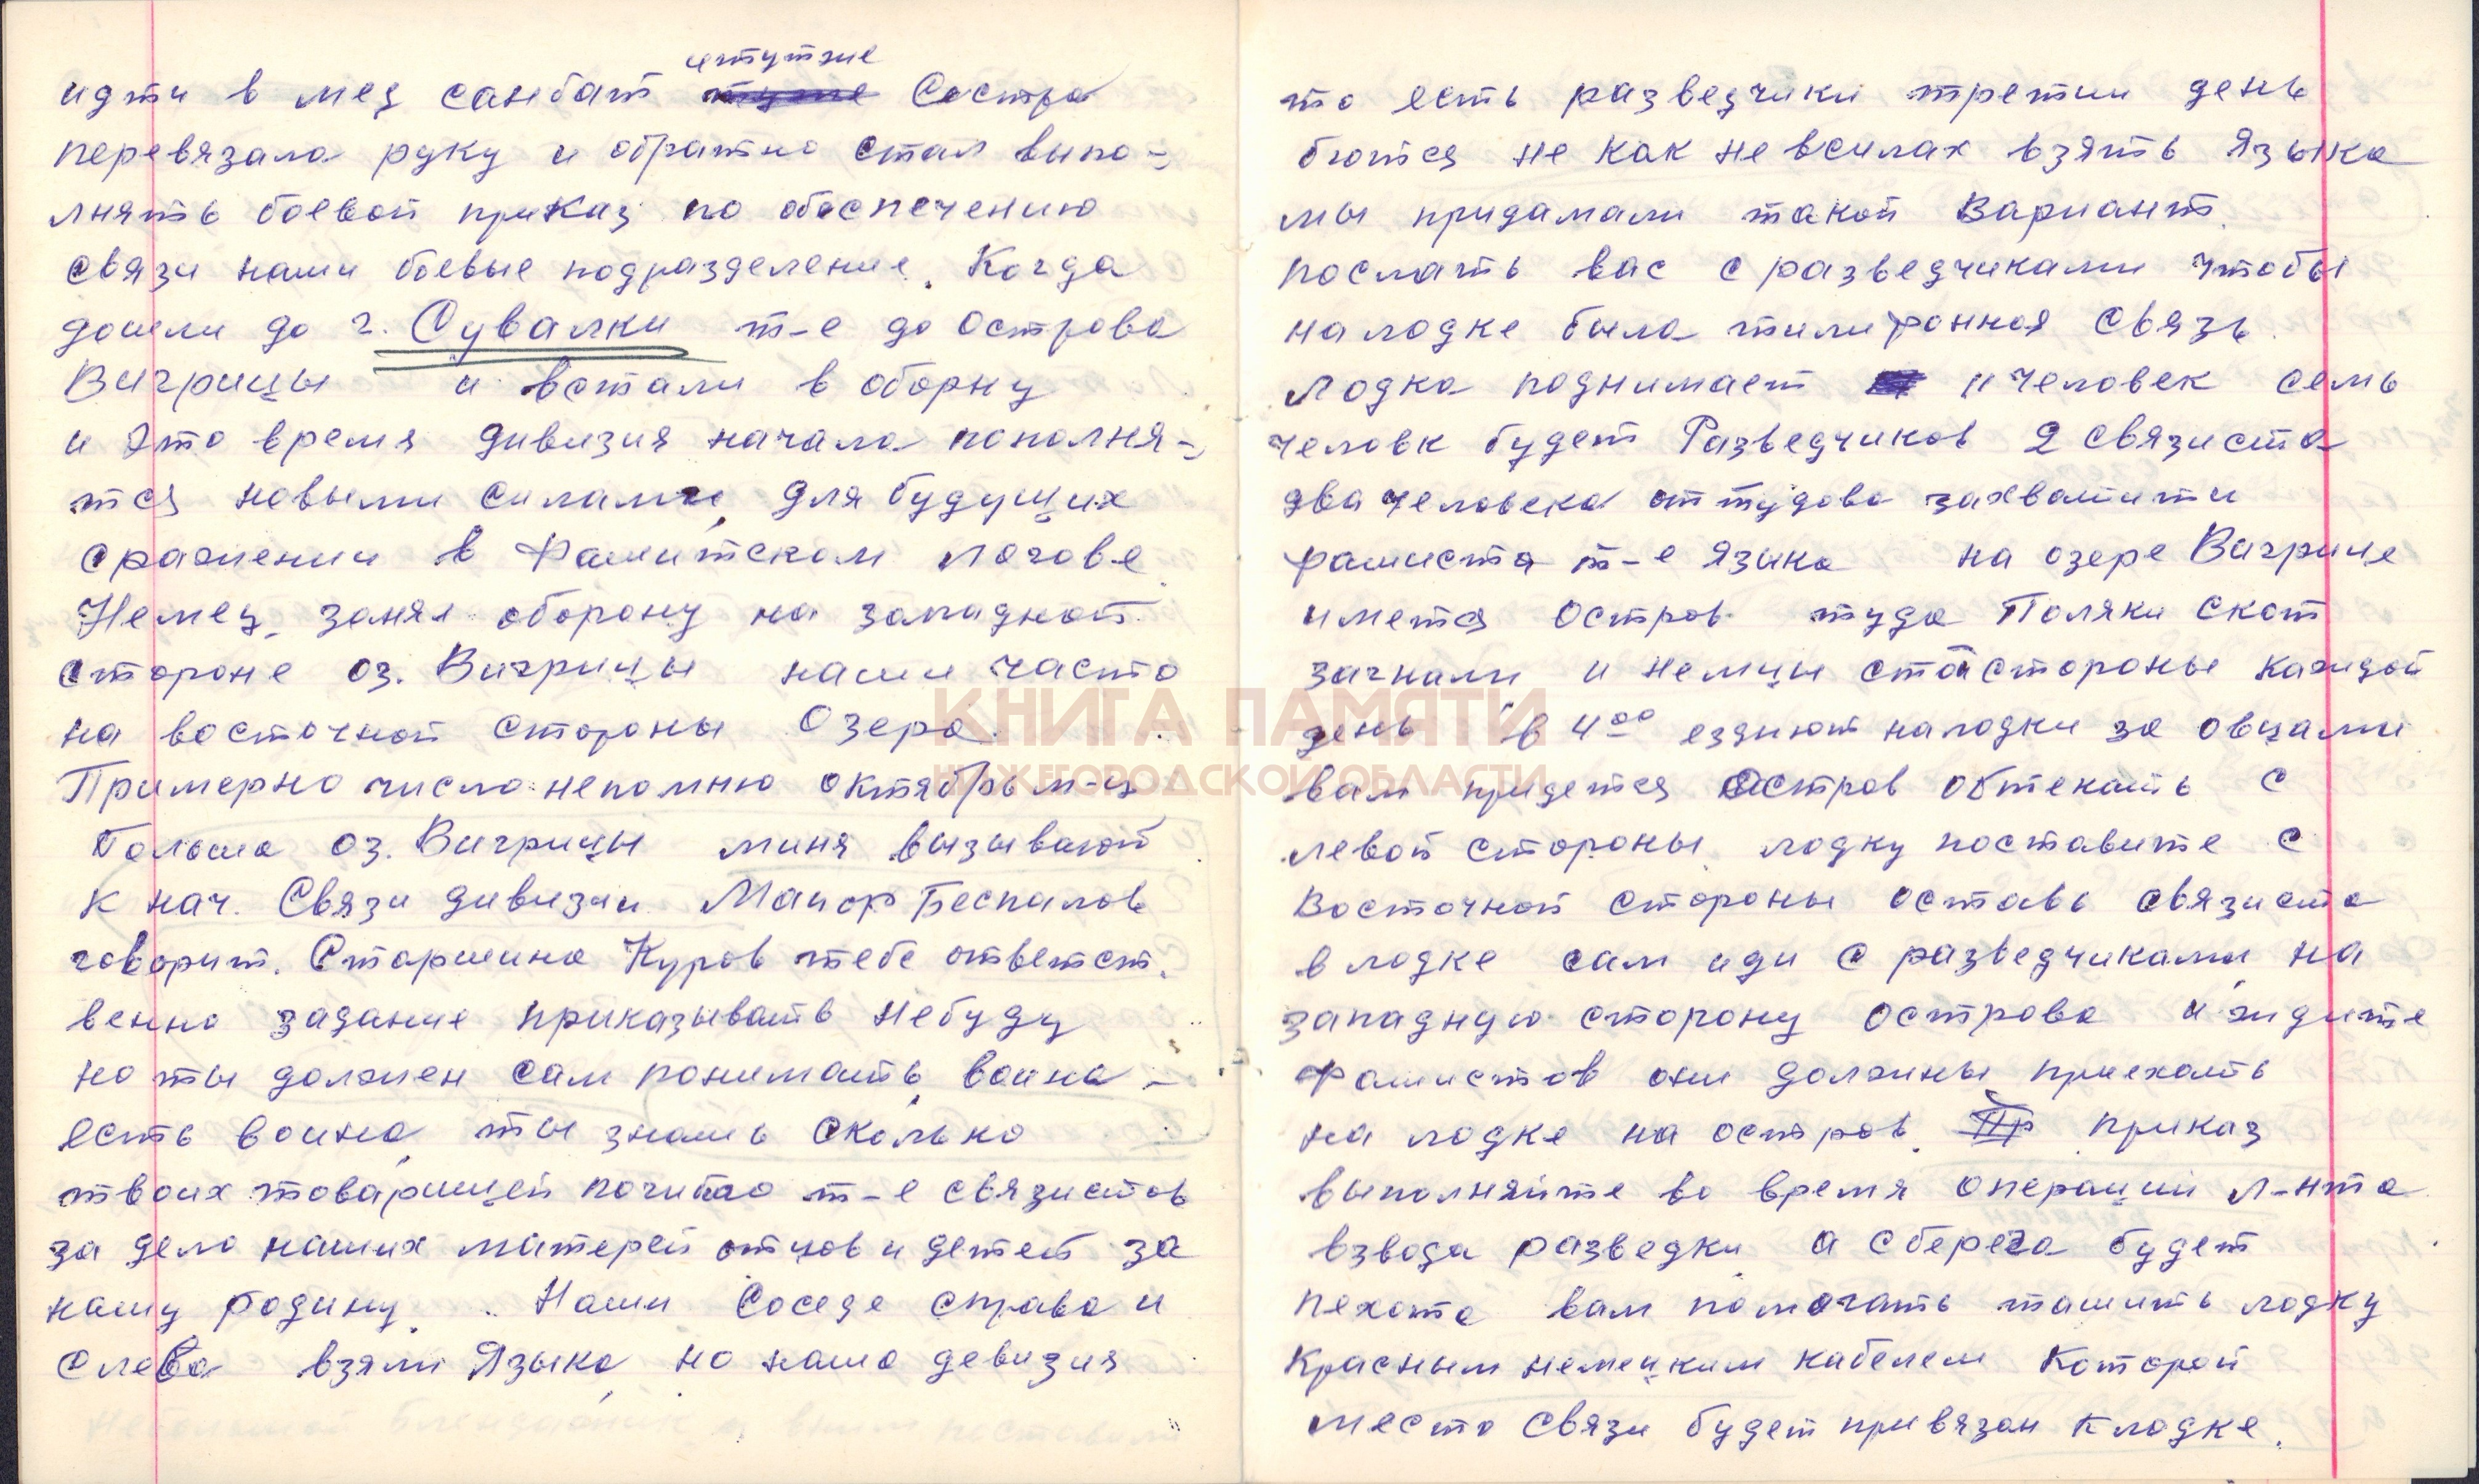 идти в мед санбат итутже Сестра
перевязала руку и обратно стал выпо-
лнять боевой приказ по обеспечению
связи наши боевые подразделение. Когда
дошли до г. Сувалки т-е до острова
Вигрицы и встали в оборну
и это время дивизия начала пополня-
тся новыми силами, для будущих
сражении в Фашитском логове.
Немец занял оборону на западной
стороне оз. Вигрицы наши часто
на восточной стороны Озера.
Примерно число непомню октябрь м-ц
Польша оз. Вигрицы миня вызывают
к нач. Связи дивизии Маиор Беспалов
говорит. Старшина Куров тебе ответст.
венно задание приказывать небуду
но ты должен сам понимать, воина -
есть воина, ты знашь сколько
твоих товарищей погибло т-е связистов
за дело наших матерей отцов и детей за
нашу родину. Наши Соседе справа и
Слева взяли Языка, но наша девизия
то есть разведчики третии день
бются не как не всилах взять Языка
мы придамали такой Вариант.
послать вас с разведчиками чтобы
на лодке была тилифонная связь.
Лодка поднимает 11 человек семь
человк будет Разведчиков 2 связиста
два человека оттудова захватити
фашиста т-е языка на озере Вигрице
имется Остров туда Поляки скот
загнали и немцы стойстороны каждой
день в 4 00 ездиют налодки за овцами
вам придется Остров обтекать с
левой стороны, лодку поставите с
Восточной стороны оставь связиста
в лодке сам иди с разведчиками на
западную сторону острова и ждите
фашистов они должны приехать
на лодке на остров. приказ
выполняйте во время операции л-нта
взвода разведки, а сберега будет
пехота вам помогать ташить лодку
Красным немецким кабелем Которой
место связи будет привязан клодке.
КНИГА ПАМЯТИ
НИЖЕГОРОДСКОЙ ОБЛАСТИ